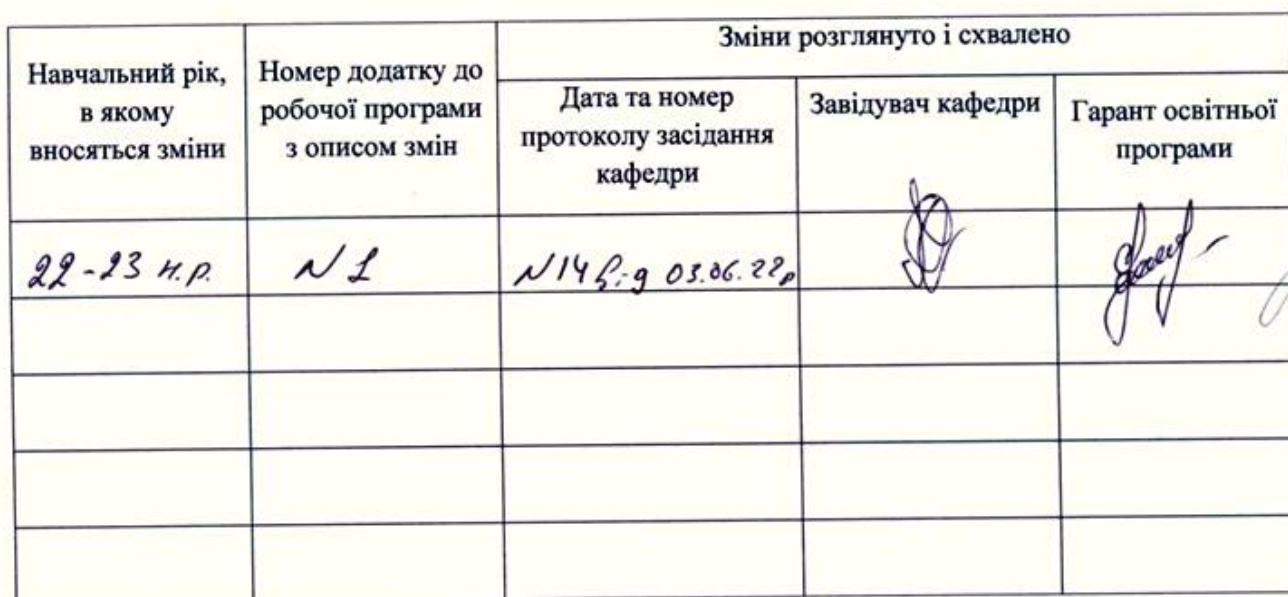 Навчальний рік,
в якому
вносяться зміни
Номер додатку до
робочої програми
з описом змін
Зміни розглянуто і схвалено
Дата та номер
протоколу засідання
кафедри
Завідувач кафедри
Гарант освітньої
програми
22-23 н.р.
N 1
N14 від 03.06.22р